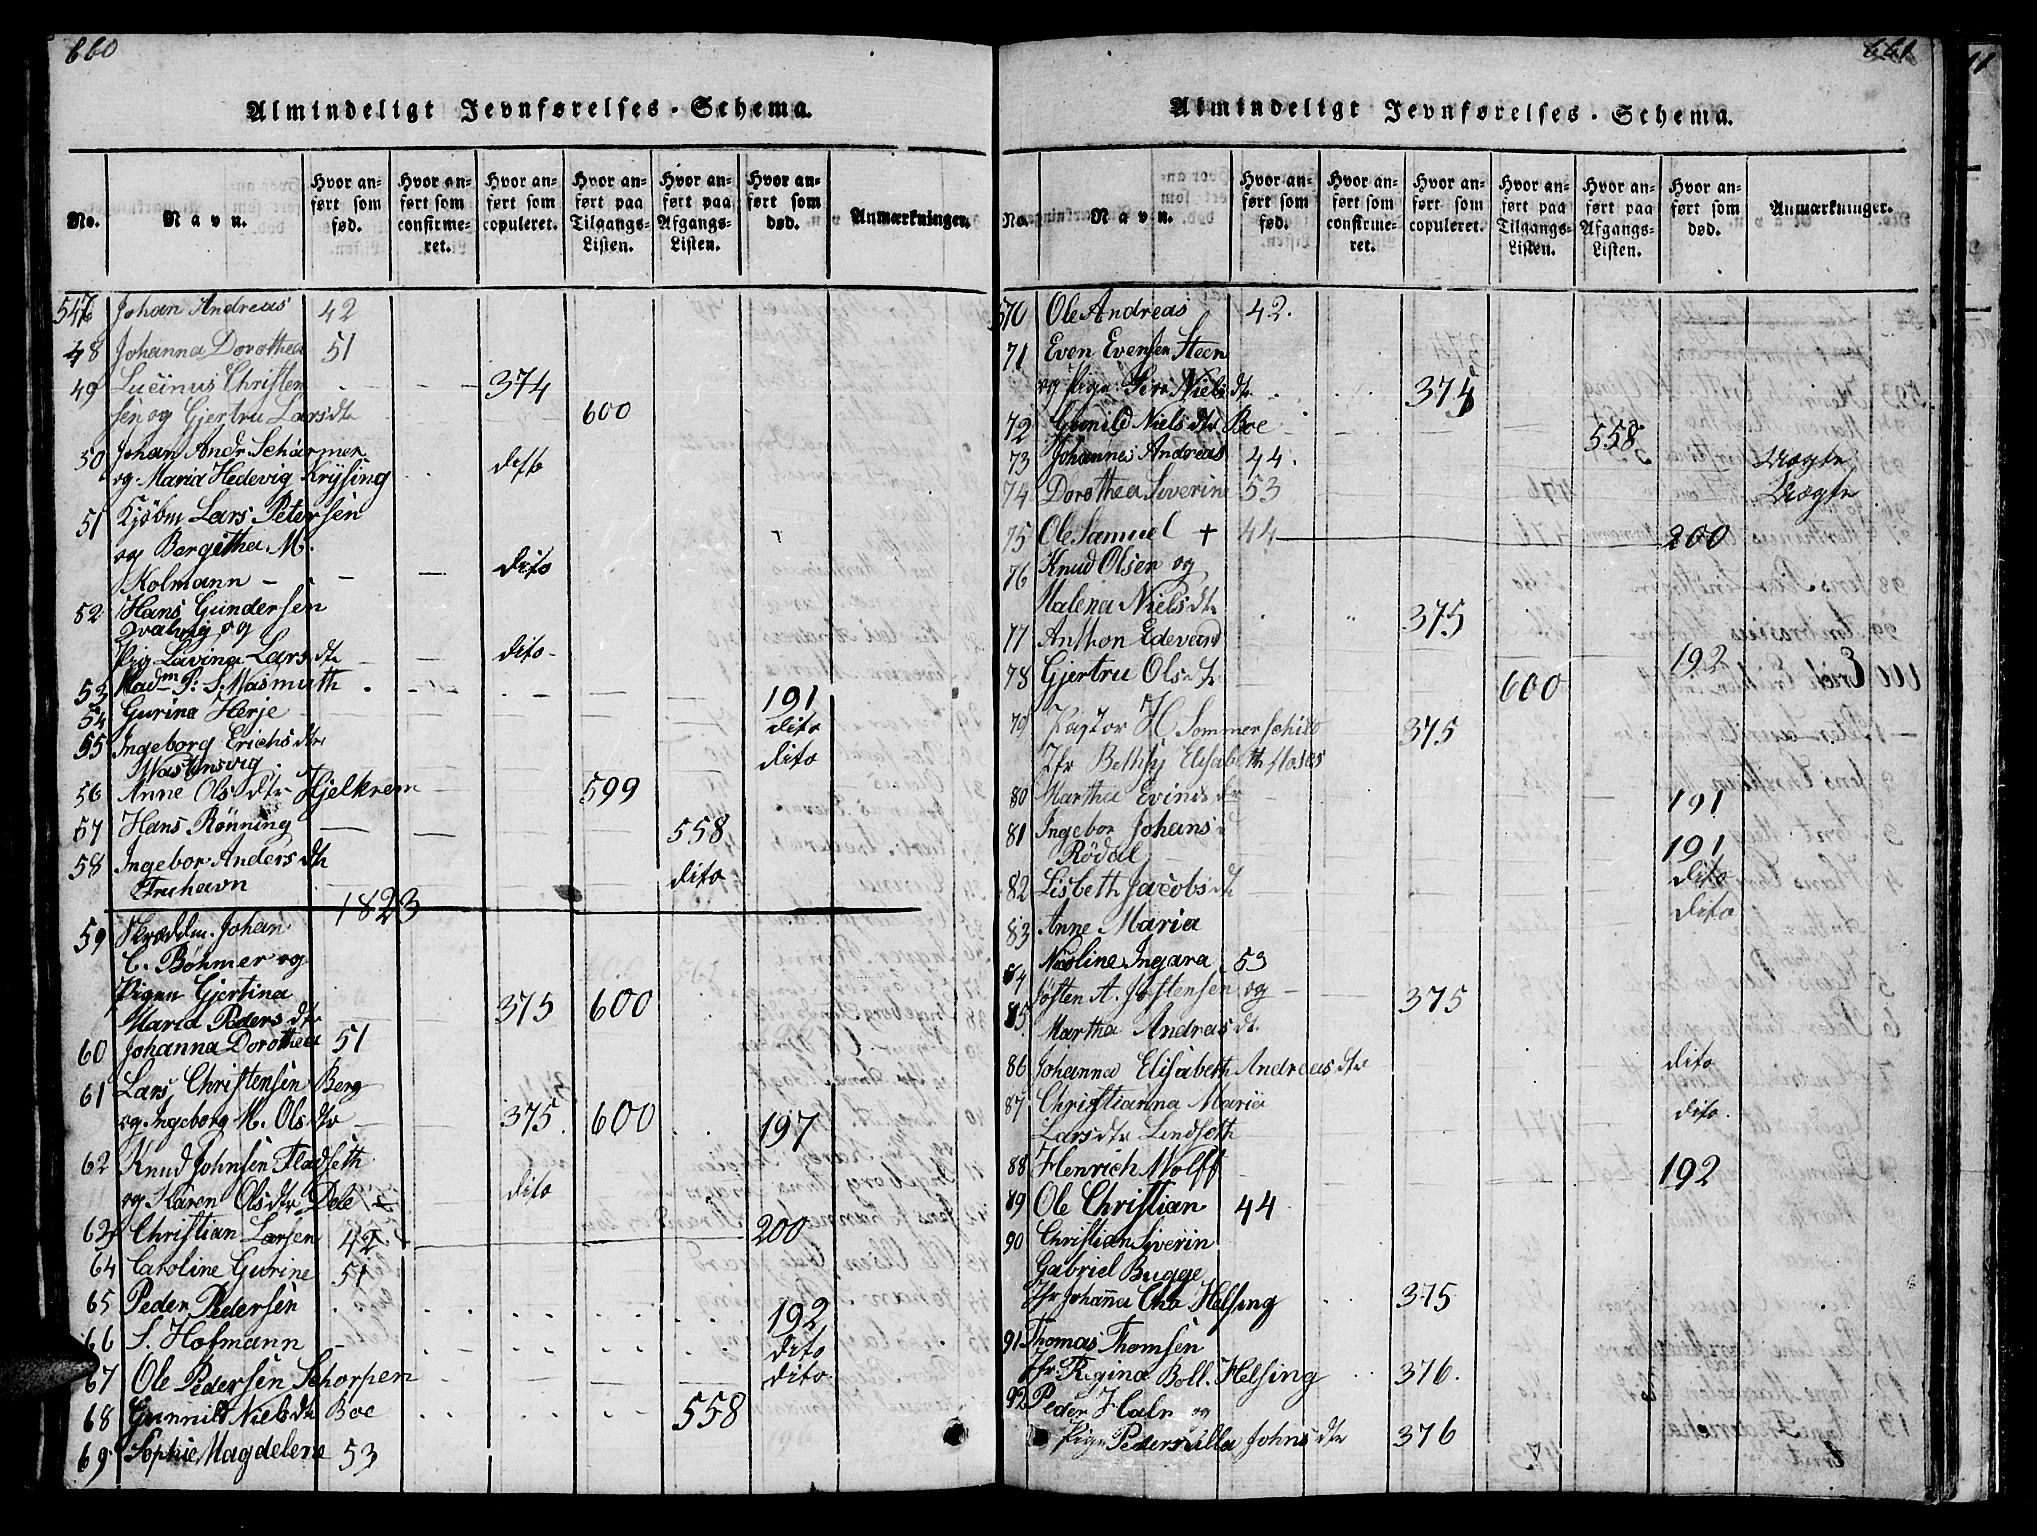 660
Almindeligt Jevnførelses-Schema.
No.
Navn.
Hvor anført som fød.
Hvor anført som confirmeret.
Hvor anført som copuleret.
Hvor anført paa Tilgangs-Listen.
Hvor anført paa Afgangs-Listen.
Hvor anført som død.
Anmærkninger.
547 Johan Andreas 42
48 Johanna Dorothea 51
49 Lucinus Christen 374
sen og Gjertru Larsdtr 600
50 Johan Andr Schärmer
og Maria Hedevig Krysing dito
51 Kjöbm Lars Petersen
og Bergitha M.
Kolmann dito
52 Hans Gundersen
Qvalvig og
Pig Lavina Larsdtr dito
53 Madm P: S. Wasmuth 191
54 Gurina Herje dito
55 Ingeborg Erichsdtr
Wastensvig dito
56 Anne Olsdtr Hjelkrem 599
57 Hans Rönning 558
58 Ingebor Andersdtr
Fruhavn dito
1823
59 Skræddm. Johan
C. Böhmer og
Pigen Gjertina
Maria Pedersdtr 375 600
60 Johanna Dorothea 51
61 Lars Christensen Berg
og Ingeborg M. Olsdtr 375 600 197
62 Knud Johnsen Fladseth
og Karen Olsdtr Dale dito
63 Christian Larsen 42 200
64 Caroline Gurine 51
65 Peder Pedersen 192
66 S. Hofmann dito
67 Ole Pedersen Schorpen dito
68 Gunnild Nielsdtr Boe 558
69 Sophie Magdelene 53
661
Almindeligt Jevnførelses-Schema.
No.
Navn.
Hvor anført som fød.
Hvor anført som confirmeret.
Hvor anført som copuleret.
Hvor anført paa Tilgangs-Listen.
Hvor anført paa Afgangs-Listen.
Hvor anført som død.
Anmærkninger.
570 Ole Andreas 42.
71 Even Evensen Steen
og Pige Siri Nielsdtr 374
72 Gunild Nielsdtr Boe 558
73 Johannes Andreas 44. Uægte
74 Dorothea Siverine 53 Uægte
75 Ole Samuel + 44 200
76 Knud Olsen og
Malena Nielsdtr 375
77 Anthon Edevard 192
78 Gjertru Olsdtr 600
79 Pastor H Sommerschild 375
Jfr Bethsy Elisabeth Moses
80 Martha Evinsdtr 191
81 Ingebor Johansd
Rödal 191
82 Lisbeth Jacobsdtr dito
83 Anne Maria dito
84 Nicoline Ingara 53
85 Josten A. Jostensen og 375
Martha Andreasdt.
86 Johanna Elisabeth Andreasdtr dito
87 Christianna Maria
Larsdtr Lindseth dito.
88 Henrich Wolff 192
89 Ole Christian 44
90 Christian Siverin
Gabriel Bugge
Jfr Johanna Cha Helsing 375
91 Thomas Thomsen
Jfr Regina Boll. Helsing 376.
92 Peder Haln og
Pige Pedersilla Johnsdtr 376